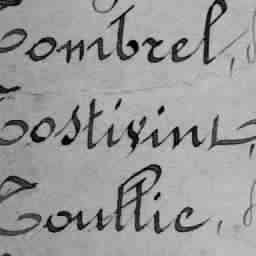 Combrel,
Costivint,
Coullic,